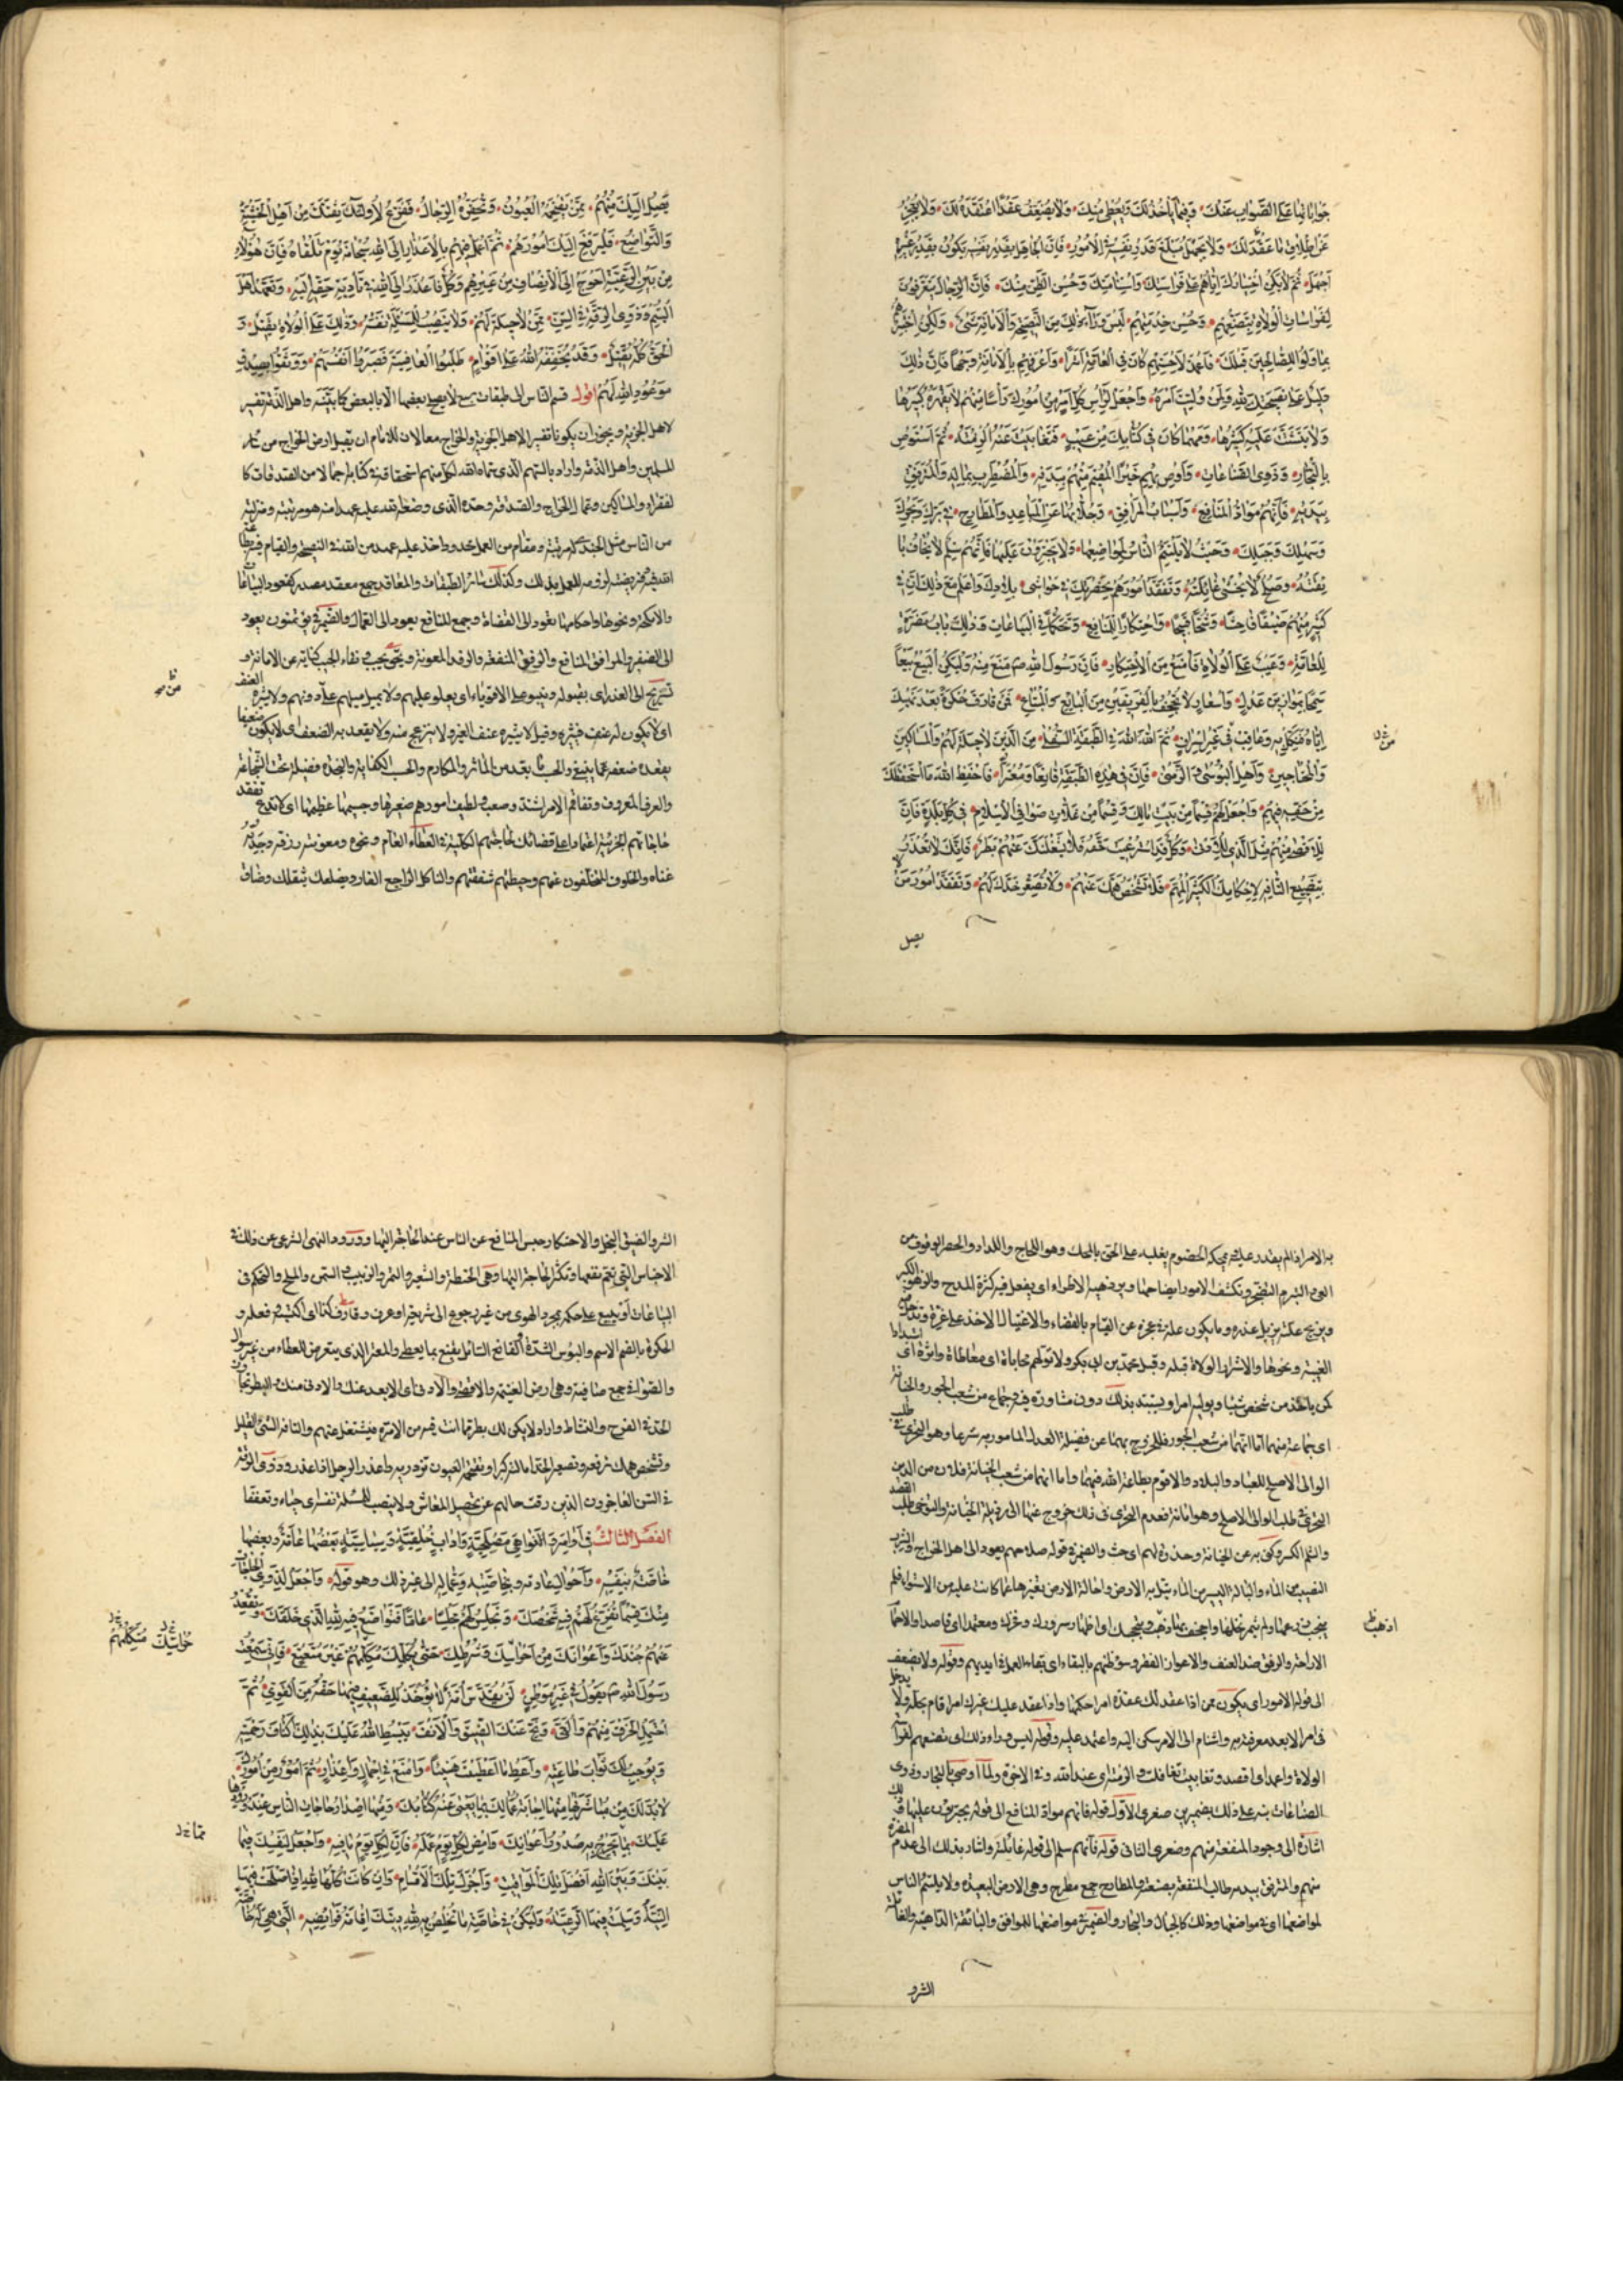 جواباتها على الصواب عنك وفيما يأخذ لك ويعطي منك ولا يضعف عقدا اعتقده لك ولا يعجز
عن اطلاق ما عقد لك ولا يجهل مبلغ قدر نفسه في الامور فان الجاهل بقدر نفسه يكون بقدر غيره
اجهل ثم لا يكن اختيارك اياهم على فراستك واستنامتك وحسن الظن منك فان الرجال يتعرفون
لفراسات الولاة بتصنعهم وحسن خدمتهم ليس وراء ذلك من النصيحة والامانة شيء ولكن اختبرهم
بما ولوا للصالحين قبلك فاعمد لاحسنهم كان في العامة اثرا واعرفهم بالامانة وجها فان ذلك
دليل على نصيحتك لله ولمن وليت امره واجعل لراس كل امر من امورك راسا منهم لا يقهره كبيرها
ولا يتشتت عليه كثيرها ومهما كان في كتابك من عيب فتغابيت عنه الزمته ثم استوص
بالتجار وذوي الصناعات واوص بهم خيرا المقيم منهم ببدنه والمضطرب بماله والمترفق
ببدنه فانهم مواد المنافع واسباب المرافق وجلابها عن المباعد والمطارح في برك وبحرك
وسهلك وجبلك وحيث لا يلتئم الناس لمواضعها ولا يجترؤن عليها فانهم سلم لا تخاف با
ئقته وصلح لا تخشى غائلته وتفقد امورهم بحضرتك وفي حواشي بلادك واعلم مع ذلك ان في
كثير منهم ضيقا فاحشا وشحا قبيحا واحتكارا للمنافع وتحكما في البياعات وذلك باب مضرة
للعامة وعيب على الولاة فامنع من الاحتكار فان رسول الله صم منع منه وليكن البيع بيعا
سمحا بموازين عدل واسعار لا تجحف بالفريقين من البائع والمبتاع فمن قارف حكرة بعد نهيك
اياه فنكل به وعاقب في غير اسراف ثم الله الله في الطبقة السفلى من الذين لا حيلة لهم والمساكين
والمحتاجين واهل البؤسى والزمنى فان في هذه الطبقة قانعا ومعترا فاحفظ الله ما استحفظك
من حقه فيهم واجعل لهم قسما من بيت مالك وقسما من غلات صوافي الاسلام في كل بلد فان
للاقصى منهم مثل الذي للادنى وكل قد استرعيت حقه فلا يشغلنك عنهم بطر فانك لا تعذر
بتضييع التافه لاحكامك الكثير المهم فلا تشخص همك عنهم ولا تصعر خدك لهم وتفقد امور من لا
يصل
يصل اليك منهم ممن تقتحمه العيون وتحقره الرجال ففرغ لاولئك ثقتك من اهل الخشية
والتواضع فليرفع اليك امورهم ثم اعمل فيهم بالاعذار الى الله سبحانه يوم تلقاه فان هؤلاء
من بين الرعية احوج الى الانصاف من غيرهم وكل فاعذر الى الله في تادية حقه اليه وتعهد اهل
اليتم وذوي الرقة في السن ممن لا حيلة لهم ولا ينصب للمسئلة نفسه وذلك على الولاة ثقيل و
الحق كله ثقيل وقد يخففه الله على اقوام طلبوا العافية فصبروا انفسهم ووثقوا بصدق
موعود الله لهم اقول قسم الناس الى طبقات سبع لا يصلح بعضها الا بالبعض كما بينه واهل الذمة تفسير
لاهل الجزية ويجوز ان يكونا تفسير الاهل الجزية والخراج معا لان للامام ان يقبل ارض الخراج من سائر
المسلمين واهل الذمة واراد بالسهم الذي سماه الله لكل منهم استحقاقه في كتابه جملا من الصدقات كا
لفقراء والمساكين وعمال الخراج والصدقة وحده الذي وضع الله عليه عهدا منه هو مرتبته ومنزلته
من الناس مثل الجند لا مرتبة ومقام من العمل حدود اخذ عليه عهد من الله في النصيحة والقيام
لزومه للعمل بذلك وكذلك سائر الطبقات والمعاقد جمع معقد مصدر كعقود البياعا
والانكحة ونحوها واحكامها تعود الى القضاة وجمع المنافع يعود الى العمال والضمير في يؤتمنون يعود
الى الصنفين والمرافق المنافع والرفق المنفعة والرفد المعونة ونقي جيب نقاء الجيب كناية عن الامانة و
يستريح الى العذر اى يقبله وينبو على الاقوياء اى يعلو عليهم ولا يميل ميلهم على دونهم ولا يثيره العنف
اى لا يكون له عنف فيثيره وقيل لا يثيره عنف الغير ولا ينزعج منه ولا يقعد به الضعف اى لا يكون ضعيفا
يقعده ضعفه عما ينبغي والحسب ما يعد من المآثر والمكارم والحسب الكفاية والنجدة فضيلة تحت الشجاعة
والعرف المعروف وتفاقم الامر اشتد وصعب ولطيف امورهم صغيرها وجسيمها عظيمها اى لا تدع تفقد
حاجاتهم الجزئية اعتمادا على قضائك لحاجتهم الكلية في العطاء العام ونحوه ومعونته رزقه وجدته
غناه والخلوف المتخلفون عنهم وحيطتهم شفقتهم والناكل الراجع الغار ويضلعك يثقلك وضاق
به الامر اذا لم يقدر عليه ومحكه الخصوم يغلبه على الحق بالمحك وهو اللجاج واللداد والحصر الوقوف عن
العي والتبرم التضجر وتكشف الامور ايضاحها ويزدهيه الاطراء اى يفعل فيه كثرة المدح والزهو الكبر
ويزيح علته يزيل عذره وما يكون علة في عجزه عن القيام بالقضاء والاغتيال الاخذ على غرة
الغيبة ونحوها والاشرار الولاة قبله وقبل محمد بن ابي بكر ولا تولهم محاباة اى معاطاة واثرة اى
كمن ياخذ من شخص شيئا ويوليه امرا ويستبد بذلك دون مشاورة فيه وجماع من شعب الجور والخيانة
اى جماعة منهما اما انهما من شعب الجور فللخروج بهما عن فضيلة العدل المامور به شرعا وهو التحري في طلب
الوالي الاصلح للعباد والبلاد والاقوم بطاعة الله فيهما واما انهما من شعب الخيانة فلان من الدين
التحري في طلب الوالي الاصلح وهو امانة فعدم التحري في ذلك خروج عنها الى رذيلة الخيانة والتوخي طلب القصد
والثلم الكسر وكنى به عن الخيانة وحدوة لهم اى حث والضمير في قوله صلاحهم يعود الى اهل الخراج والشرب
النصيب من الماء والبالة اليسير من الماء يتبل به الارض واحالة الارض تغيرها عما كانت عليه من الاستواء فلم
الاراحة والرفق ضد العنف والاعواز الفقر وسوء ظنهم بالبقاء اى بقاء العمل في ايديهم وقوله ولا يضعف
الى قوله الامور اى يكون ممن اذا عقد لك عقدة امر احكمها واذا عقد عليك غيرك امرا قام بحله ولا يدخل
في امر الا بعد معرفته به واستنام الى الامر سكن اليه واعتمد عليه وقوله ليس وراء ذلك اى تصنعهم لفرا
الولاة واعمد اى اقصد وتغابيت تغافلت والزمته اى عند الله وفي الاخرة ولما اوصى بالتجار وذوي
الصناعات نبه على ذلك بضميرين صغرى الاول قوله فانهم مواد المنافع الى قوله يجترؤن عليها
اشارة الى وجود المنفعة منهم وصغرى الثاني قوله فانهم سلم الى قوله غائلته واشار بذلك الى عدم المضرة
منهم والمترفق بيديه طالب المنفعة بصنعته والمطارح جمع مطرح وهي الارض البعيدة ولا يلتئم الناس
لمواضعها اى في مواضعها وذلك كالجبال والبحار والضمير في مواضعها للمرافق والبائقة الداهية والغائلة
الشر و
الشر والضيق البخل والاحتكار حبس المنافع عن الناس عند الحاجة اليها وورود النهي الشرعي عن ذلك في
الاجناس التي يعم نفعها وتكثر الحاجة اليها وهي الحنطة والشعير والتمر والزبيب والسمن والملح والتحكم في
البياعات ان يبيع على حكمه بمجرد الهوى من غير رجوع الى شريعة او عرف وقارف كذا اى اكتسبه وفعله و
الحكرة بالضم الاسم والبؤس الشدة والقانع السائل يقنع بما يعطى والمعتر الذي يتعرض للعطاء من غير سؤال
والصوافي جمع صافية وهي ارض الغنيمة والاقصى والادنى اى الابعد عنك والادنى منك والبطر
الحد في الفرح والنشاط واراد لا يكن لك بطر بما انت فيه من الامرة فيشتغل عنهم والتافه الشيء القليل
وتشخص همك ترفعه وتصعير الخد امالته كبرا وتقتحمه العيون تزدريه واعذر الرجل اذا عذر وذوي الرقة
في السن العاجزون الذين رقت حالهم عن تحصيل المعاش ولا ينصب للمسئلة نفسه اى حياء وتعففا
الفصل الثالث في اوامر ونواهي مصلحية واداب خلقية وسياسية بعضها عامة وبعضها
خاصة بنفسه واحوال عبادته وبخاصته وعماله الى غير ذلك وهو قوله واجعل لذوي الحاجات
منك قسما تفرغ لهم فيه شخصك وتجلس لهم مجلسا عاما فتواضع فيه لله الذي خلقك وتقعد
عنهم جندك واعوانك من احراسك وشرطك حتى يكلمك مكلمهم غير متتعتع فاني سمعت
رسول الله صم يقول في غير موطن لن تقدس امة لا يؤخذ للضعيف فيها حقه من القوي ثم
احتمل الخرق منهم والعي ونح عنك الضيق والانف يبسط الله عليك بذلك اكناف رحمته
ويوجب لك ثواب طاعته واعط ما اعطيت هنيئا وامنع في اجمال واعذار ثم امور من امورك
لا بد لك من مباشرتها منها اجابة عمالك بما يعيى عنه كتابك ومنها اصدار حاجات الناس عند ورودها
عليك بما تحرج به صدور اعوانك وامض لكل يوم عمله فان لكل يوم ما فيه واجعل لنفسك فيما
بينك وبين الله افضل تلك المواقيت واجزل تلك الاقسام وان كانت كلها لله اذا صلحت فيها
النية وسلمت فيها الرعية وليكن في خاصة ما تخلص به لله دينك اقامة فرائضه التي هي له خاصة